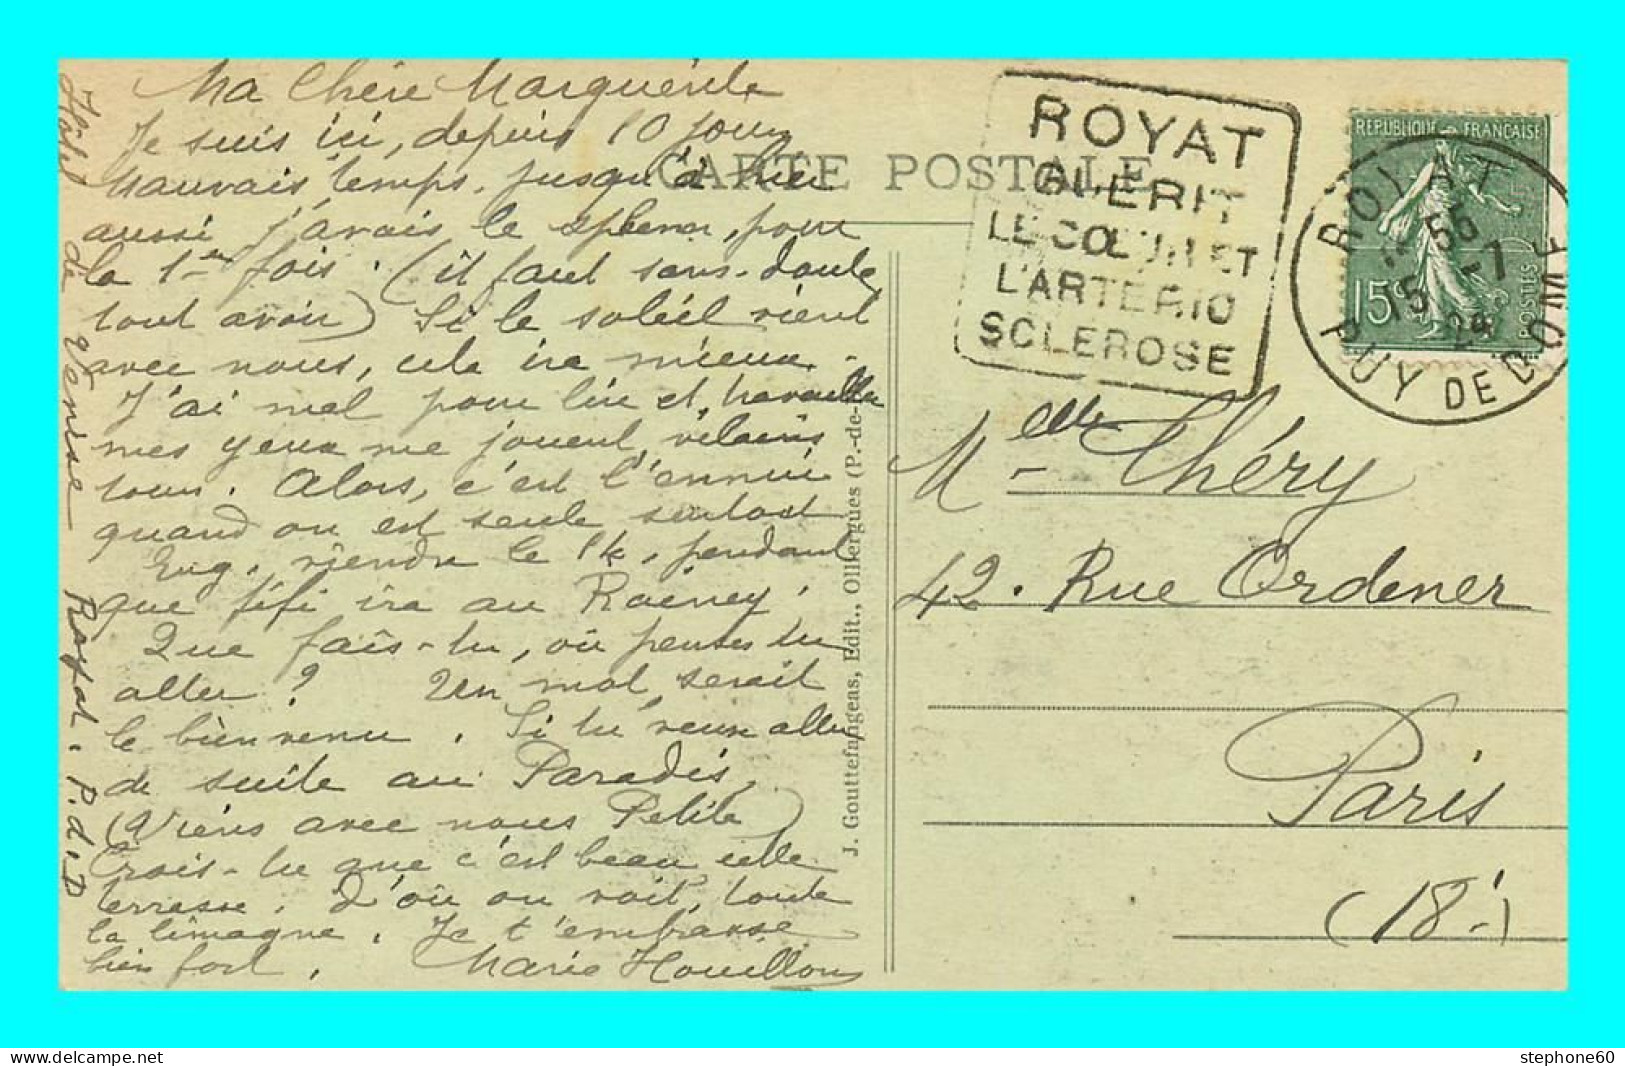 Ma Chère Marguerite
Je suis ici, depuis 10 jours
Mauvais temps, jusqu'à hier
aussi j'avais le spleen, pour
la 1re fois. (il faut sans-doute
tout avoir) Si le soleil vient
avec nous, cela ira mieux.
J'ai mal pour lire et, travailler
mes yeux me jouent, vilains
tours. Alors, c'est l'ennui
quand on est seule surtout
Eug. viendra le 14, pendant
que fifi ira au Raincy.
Que fais-tu, où penses tu
aller? Un mot, serait
le bienvenu. Si tu veux aller
de suite au Paradis,
(Viens avec nous Petite)
Crois-tu que c'est beau cette
terrasse. d'où on voit, toute
la limagne. Je t'embrasse
bien fort. Marie Houillon
Hôtel de Venise Royat. P.d.D
CARTE POSTALE
J. Gouttefangeas, Edit., Olliergues (P.-de-
ROYAT
GUERIT
LE CŒUR ET
L'ARTERIO
SCLEROSE
REPUBLIQUE FRANÇAISE
15c
POSTES
ROYAT
5 -7
24
PUY DE DOME
Melle Théry
42. Rue Ordener
Paris
(18.)
stephone60